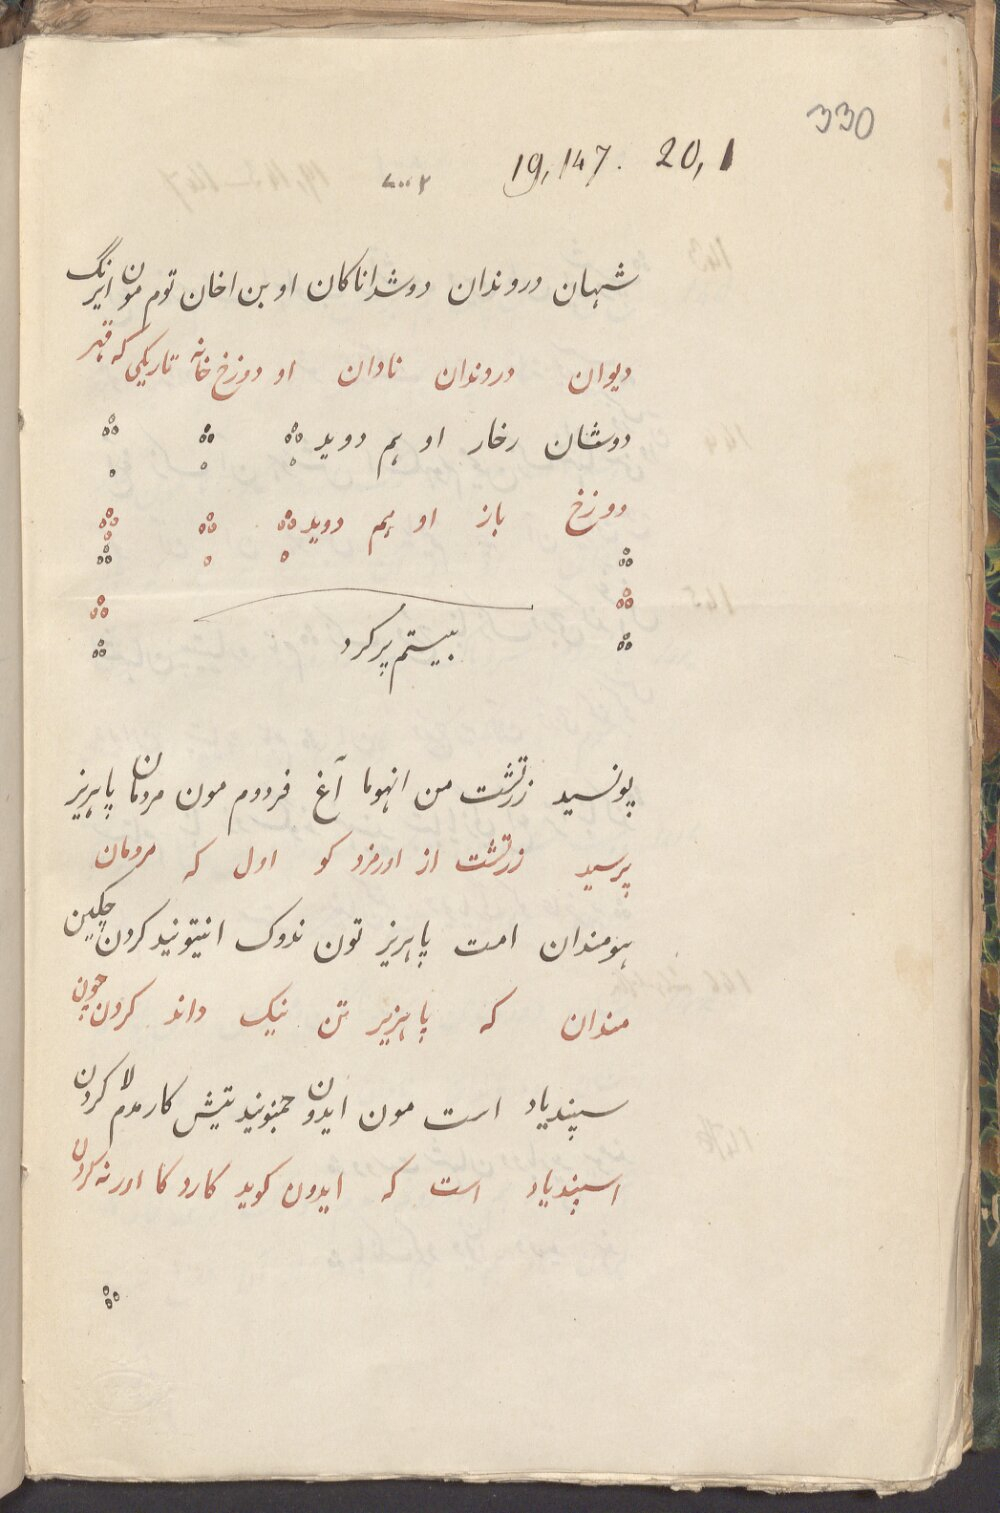 330
19,147. 20,1
شهان دروندان دوشداناکان او بن اخان توم مون ایرنگ
دیوان دروندان نادان او دوزخ خانه تاریکی که قهر
دوشان رخار او هم دوید
دوزخ باز او هم دوید
بیستم پرکرد
پونسید زرتشت من انهوما آغ فردوم مون مردمان پاهریز
پرسید زرتشت از اورمزد کو اول که مردمان
هومندان امت پاهریز تون ندوک انیتونید کردن چکین
مندان که پاهریز تن نیک داند کردن چون
سپندیاد است مون ایدون جمنونید تیش کار مدم لا کردن
اسپندیاد است که ایدون کوید کارد کا اور نه کردن